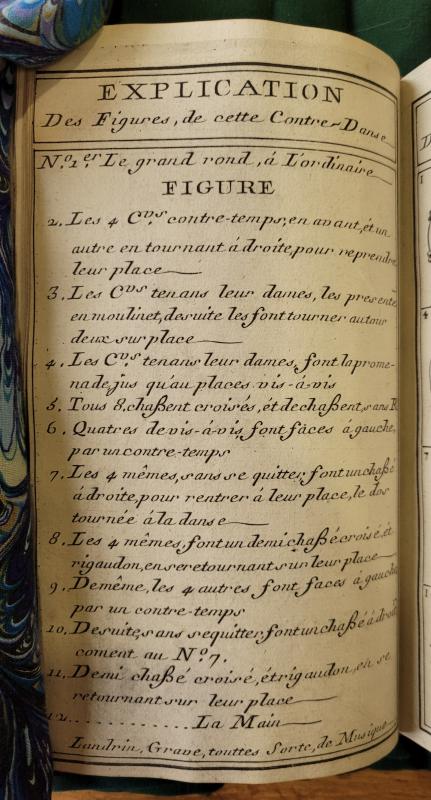 EXPLICATION
Des Figures, de cette Contre-Danse
N.o 1.er Le grand rond, á L'ordinaire
FIGURE
2. Les 4 C.vrs contre-temps, en avant, ét un
autre en tournant á droite, pour reprendre
leur place
3. Les C.vrs tenans leur dames, les presente
en moulinet, desuite les font tourner autour
deux sur place
4. Les C.vrs tenans leur dames, font la prome-
nade, jus qu'au places vis-á-vis
5. Tous 8. chaßent croisés, ét dechaßent, sans R
6. Quatres de vis-á-vis, font fáces á gauche,
par un contre-temps
7. Les 4 mêmes, sans se quitter, font un chaßé
á droite, pour rentrer á leur place, le dos
tournée á la danse
8. Les 4 mêmes, font un demi chaßé croisé, ét
rigaudon, en se retournant sur leur place
9. Demême, les 4 autres font faces á gauche
par un contre-temps
10. Desuite, sans se quitter, font un chaßé á droit
coment au N.o 7.
11. Demi chaßé croisé, ét rigaudon, en se
retournant sur leur place
12. . . . . . . . . . . . La Main
Landrin, Grave, touttes Sorte, de Musique